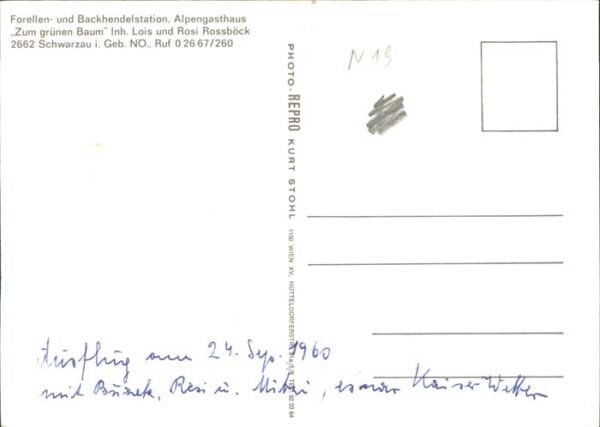 Forellen- und Backhendelstation, Alpengasthaus
„Zum grünen Baum" Inh. Lois und Rosi Rossböck
2662 Schwarzau i. Geb. NÖ., Ruf 0 26 67/260
N 19
PHOTO-REPRO KURT STOHL 1150 WIEN XV, HÜTTELDORFERSTR.
92 02 64
Ausflug am 24. Sep. 1960
mit Resi u. Mitzi, es war Kaiser Wetter